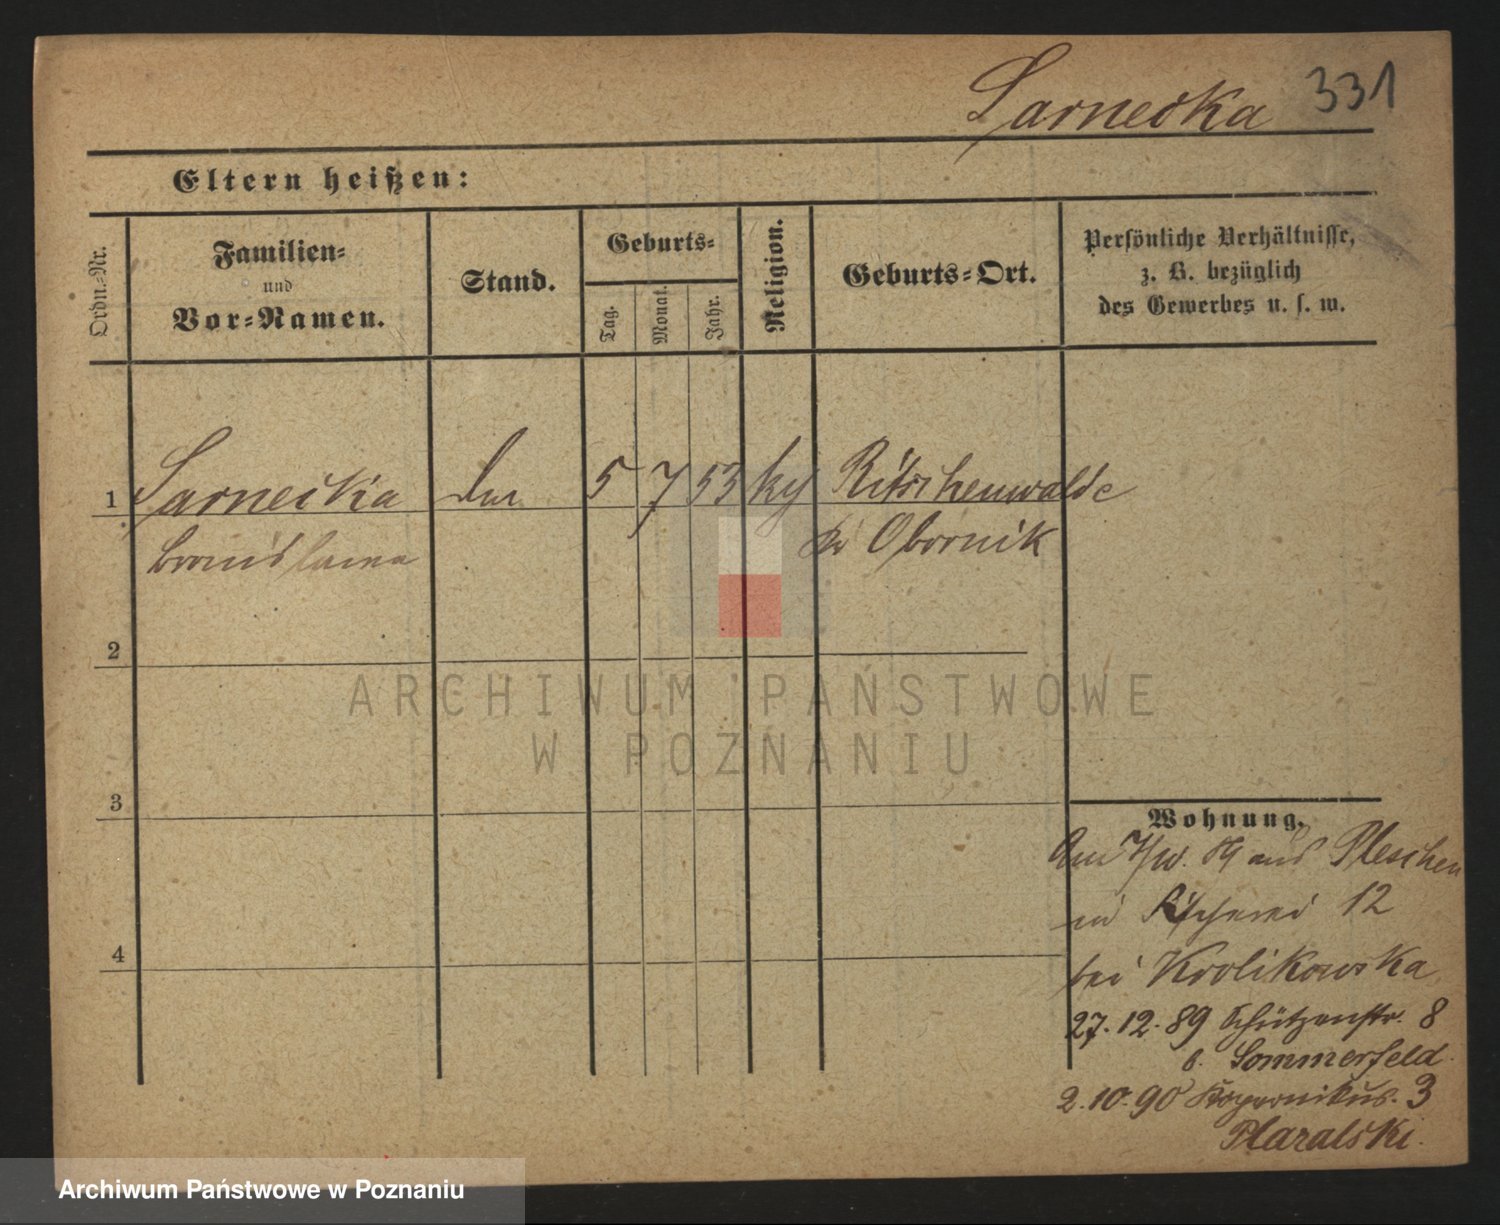 Sarnecka 331
Eltern heißen:
Ordn.-Nr.
Familien-
und
Vor-Namen.
Stand.
Geburts-
Tag.
Monat.
Jahr.
Religion.
Geburts-Ort.
Persönliche Verhältnisse,
z. B. bezüglich
des Gewerbes u. s. w.
1 Sarnecka 5 7 53 Ritschenwalde
Bronislawa Kr Obornik
2
3
4
ARCHIWUM PAŃSTWOWE
W POZNANIU
Wohnung.
Am 89 aus Pleschen
in Fischerei 12
bei Krolikowska
27.12.89 Schützenstr. 8
b. Sommerfeld
2.10.90 Kopernikus. 3
Archiwum Państwowe w Poznaniu